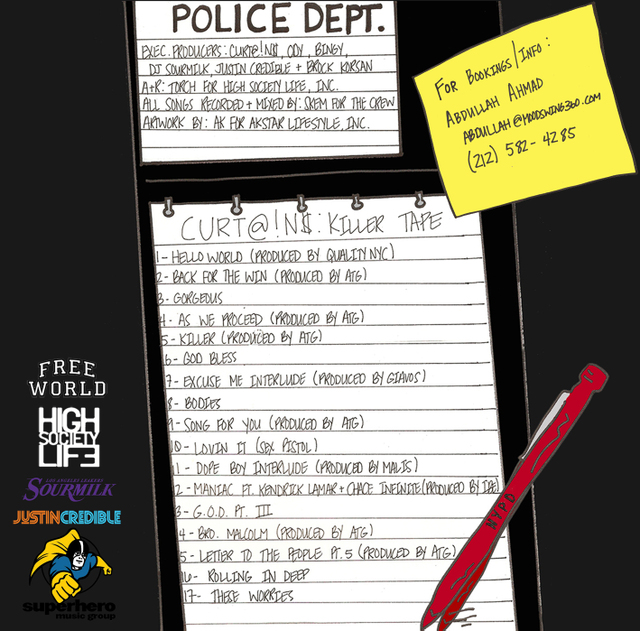 POLICE DEPT.
EXEC. PRODUCERS: CURT@!N$, ODY, BINGY,
DJ SOURMILK, JUSTIN CREDIBLE + BROCK KORSAN
A+R: TORCH FOR HIGH SOCIETY LIFE, INC.
ALL SONGS RECORDED + MIXED BY: SKEM FOR THE CREW
ARTWORK BY: AK FOR AKSTAR LIFESTYLE, INC.
FOR BOOKINGS/INFO:
ABDULLAH AHMAD
ABDULLAH@MOODSWING360.COM
(212) 582-4285
CURT@!N$: KILLER TAPE
1- HELLO WORLD (PRODUCED BY QUALITY NYC)
2- BACK FOR THE WIN (PRODUCED BY ATG)
3- GORGEOUS
4- AS WE PROCEED (PRODUCED BY ATG)
5- KILLER (PRODUCED BY ATG)
6- GOD BLESS
7- EXCUSE ME INTERLUDE (PRODUCED BY GIAVOS)
8- BODIES
9- SONG FOR YOU (PRODUCED BY ATG)
10- LOVIN IT (SEX PISTOL)
11- DOPE BOY INTERLUDE (PRODUCED BY MALIS)
2- MANIAC FT. KENDRICK LAMAR + CHACE INFINITE (PRODUCED BY
3- G.O.D. PT. III
4- BRO. MALCOLM (PRODUCED BY ATG)
5- LETTER TO THE PEOPLE PT. 5 (PRODUCED BY ATG)
16- ROLLING IN DEEP
17- THESE WORRIES
NYPD
FREE
WORLD
HIGH
SOCIETY
LIFE
LOS ANGELES LEAKERS
SOURMILK
JUSTINCREDIBLE
superhero
music group